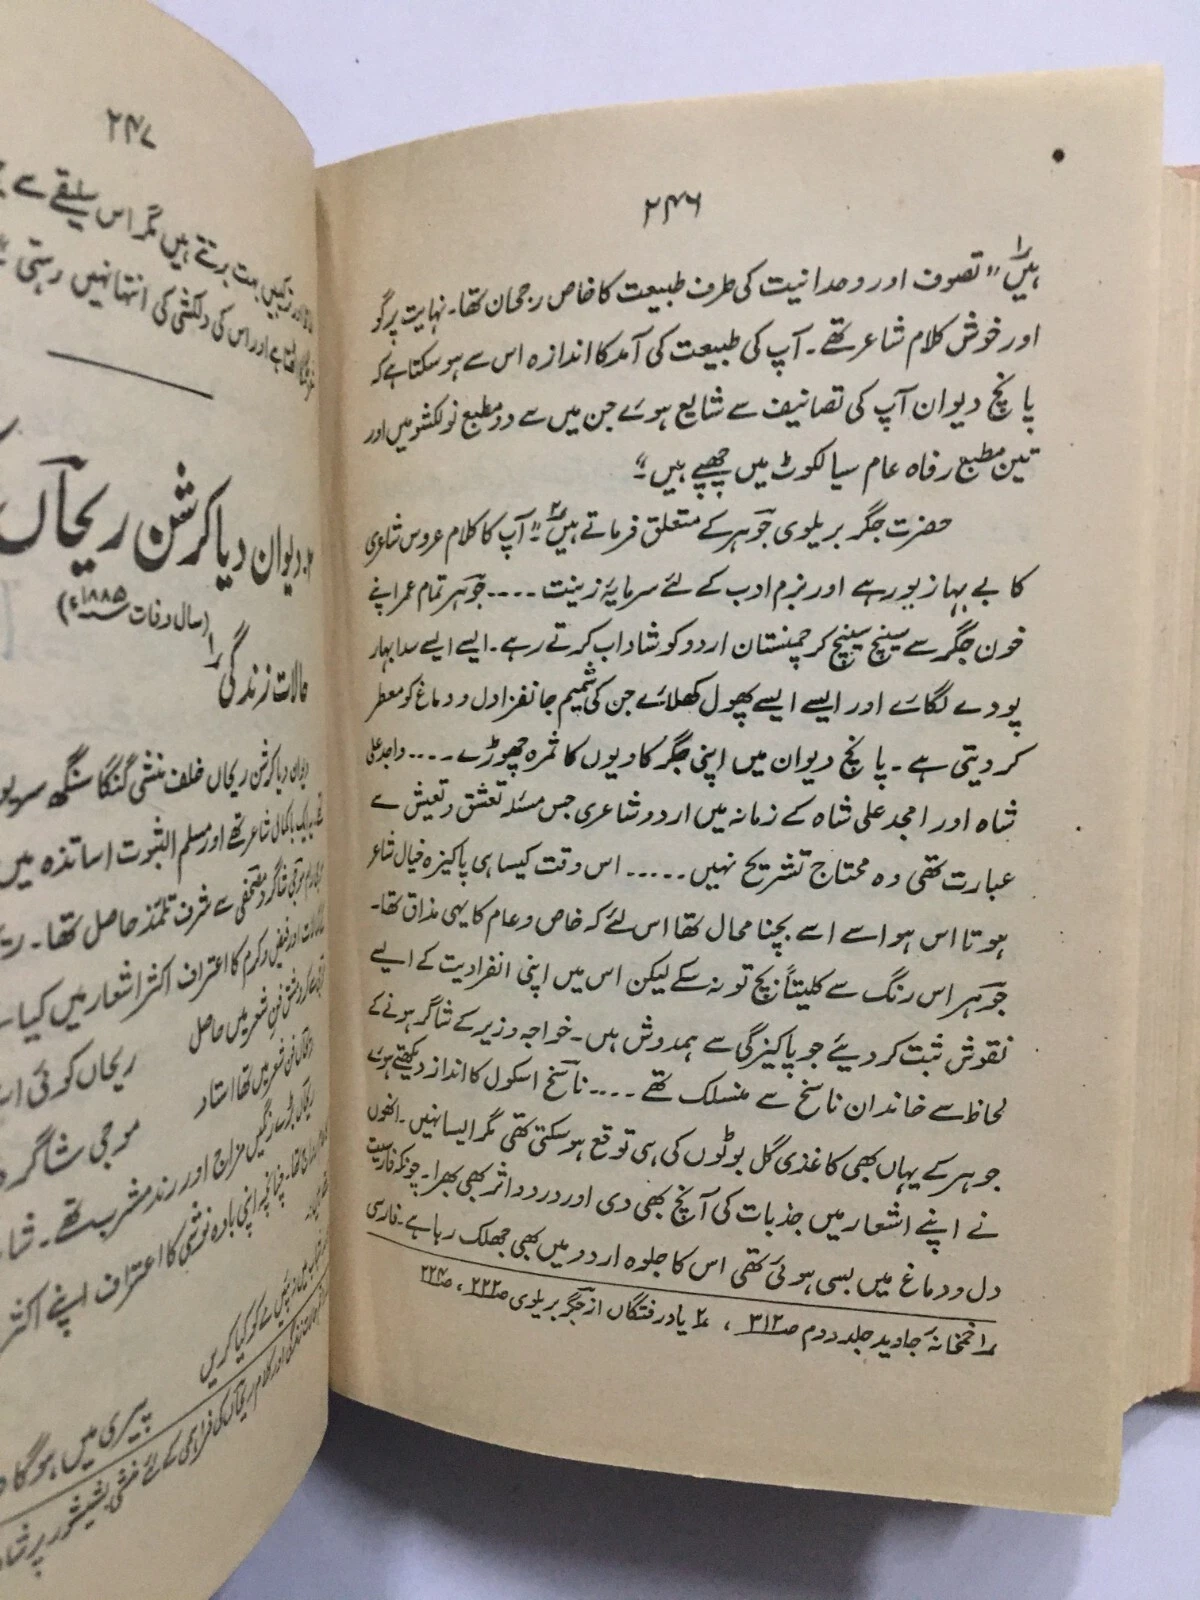 ۲۴۶
ہیں۱ "تصوف اور وحدانیت کی طرف طبیعت کا خاص رجحان تھا۔ نہایت پرگو
اور خوش کلام شاعر تھے۔ آپ کی طبیعت کی آمد کا اندازہ اس سے ہو سکتا ہے کہ
پانچ دیوان آپ کی تصانیف سے شایع ہوئے جن میں سے دو مطبع نولکشور میں اور
تین مطبع رفاہ عام سیالکوٹ میں چھپے ہیں۔"
حضرت جگر بریلوی جوہر کے متعلق فرماتے ہیں۲ "آپ کا کلام عروس شاعری
کا بے بہا زیور ہے اور بزم ادب کے لئے سرمایۂ زینت .... جوہر تمام عمر اپنے
خون جگر سے سینچ سینچ کر چمنستان اردو کو شاداب کرتے رہے۔ ایسے ایسے سدا بہار
پودے لگائے اور ایسے ایسے پھول کھلائے جن کی شمیم جانفزا دل و دماغ کو معطر
کر دیتی ہے۔ پانچ دیوان میں اپنی جگر کاویوں کا ثمرہ چھوڑے .... واجد علی
شاہ اور امجد علی شاہ کے زمانہ میں اردو شاعری جس مسئلہ تعشق و تعیش سے
عبارت تھی وہ محتاج تشریح نہیں ..... اس وقت کیسا ہی پاکیزہ خیال شاعر
ہوتا اس ہوا سے اسے بچنا محال تھا اس لئے کہ خاص و عام کا یہی مذاق تھا۔
جوہر اس رنگ سے کلیتاً بچ تو نہ سکے لیکن اس میں اپنی انفرادیت کے ایسے
نقوش ثبت کر دیئے جو پاکیزگی سے ہمدوش ہیں۔ خواجہ وزیر کے شاگر ہونے کے
لحاظ سے خاندان ناسخ سے منسلک تھے .... ناسخ اسکول کا انداز دیکھتے ہوئے
جوہر کے یہاں بھی کاغذی گل بوٹوں کی ہی توقع ہو سکتی تھی مگر ایسا نہیں۔ انھوں
نے اپنے اشعار میں جذبات کی آنچ بھی دی اور درد و اثر بھی بھرا۔ چونکہ فارسیت
دل و دماغ میں بسی ہوئی تھی اس کا جلوہ اردو میں بھی جھلک رہا ہے۔ فارسی
۱؎ خمخانۂ جاوید جلد دوم ص۳۱۲ ، ۲؎ یاد رفتگاں از جگر بریلوی ص۲۲۲ ، ص۲۲۴
۲۴۷
بہت برتتے ہیں مگر اس سلیقے سے
ہے اور اس کی دلکشی کی انتہا نہیں رہتی
۲۔ دیوان دیا کرشن ریحاں
(سال وفات ۱۸۸۵ء)
حالات زندگی۱
دیوان دیا کرشن ریحاں خلف منشی گنگا سنگھ
باکمال شاعر تھے اور مسلم الثبوت اساتذہ میں
موجی شاگرد مصحفی سے شرف تلمذ حاصل تھا۔
اور فیض و کرم کا اعتراف اکثر اشعار میں کیا
فن شعر میں حاصل
ریحاں کوئی
فن شعر میں تھا استاد
موجی شاگرد
ریحاں بڑے رنگیں مزاج اور رند مشرب تھے۔
چنانچہ اپنی بادہ نوشی کا اعتراف اپنے اکثر
کو کیا کریں
پیری میں ہو گا
اور کلام ریحاں کی فراہمی کے لئے منشی بشیشور پرشاد